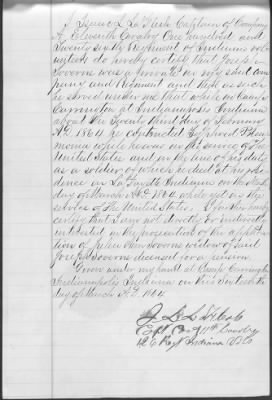 I Isaac L. La Flesh Captain of Company
A Eleventh Cavalry One hundred and
Twenty sixth Regiment of Indiana vol
unteers do hereby certify that Joseph
Sovorns was a private in my said com
pany and Regiment and that as such
he served under me that while at Camp
Carrington at Indianapolis Indiana
about the Twenty third day of February
A.D. 1864 he contracted Typhoid Pneu
monia while he was in the service of the
United States and in the line of his duty
as a soldier of which he died at his resi
dence in La Fayette Indiana on the
day of March A.D. 1864 while yet in the
service of the United States. I further more
certify that I am not directly or indirectly
interested in the prosecution of the applica
tion of Sovorns widow of said
Joseph Sovorns deceased for a pension.
Given under my hand at Camp Carrington
Indianapolis Indiana on this
day of March A.D. 1864
Capt Co 11th Cavalry
126 Regt Indiana Vols